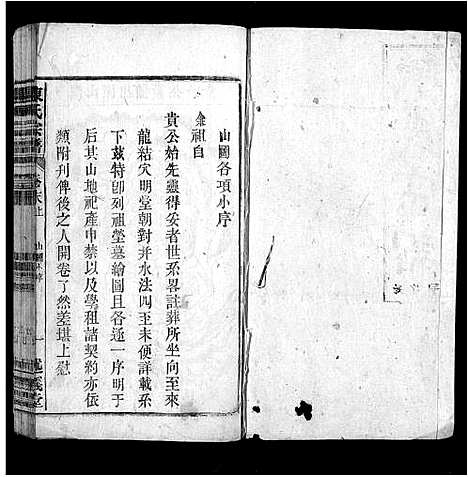 山圖各項小序
僉祖自
貴公始先靈得妥者世系畧註葬所坐向至來
龍結穴明堂朝對并水法四至未便詳載系
下茲特卽列祖塋墓繪圖且各遞一序明于
后其山地祀產申禁以及學租諸契約亦依
類附刋俾後之人開卷了然差堪上慰
陳氏宗譜
卷末上
山圖小序
一